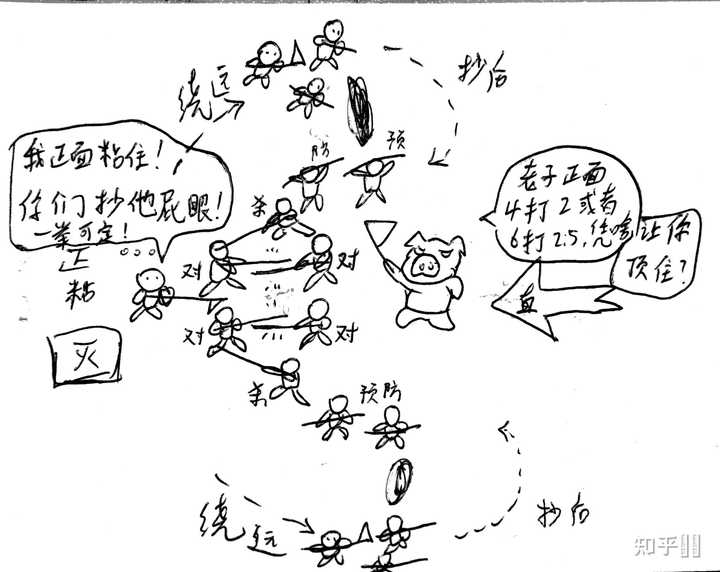 绕远
抄后
我正面粘住！
你们抄他屁眼！
一举可定！
防
预
老子正面
4打2或者
6打2.5，凭啥
让你
顶住？
杀
正
粘
对
对
直
对
对
灭
杀
预防
绕远
抄后
知乎